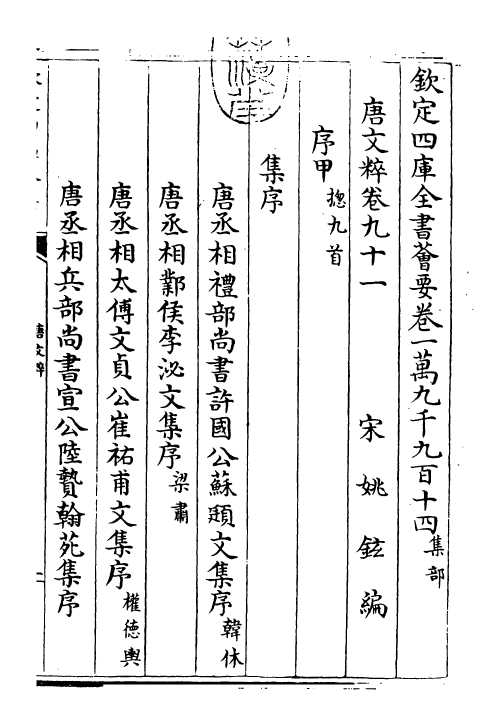 欽定四庫全書薈要卷一萬九千九百十四集部
唐文粹卷九十一　宋姚鉉編
序甲摠九首
集序
唐丞相禮部尚書許國公蘇頲文集序韓休
唐丞相鄴侯李泌文集序梁肅
唐丞相太傅文貞公崔祐甫文集序權德輿
唐丞相兵部尚書宣公陸贄翰苑集序
唐文粹